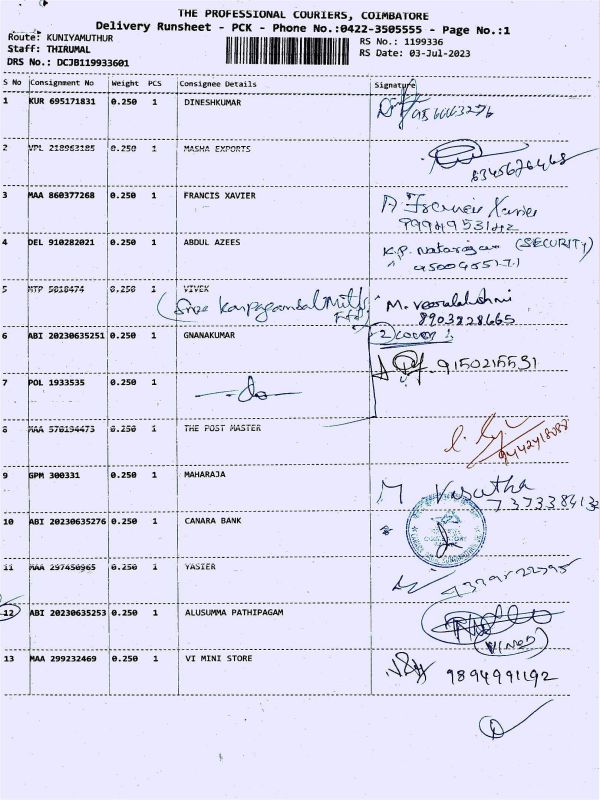 THE PROFESSIONAL COURIERS, COIMBATORE
Delivery Runsheet - PCK - Phone No.:0422-3505555 - Page No.:1
Route: KUNIYAMUTHUR
RS No.: 1199336
Staff: THIRUMAL
RS Date: 03-Jul-2023
DRS No.: DCJB119933601
S No Consignment No Weight PCS Consignee Details Signature
1 KUR 695171831 0.250 1 DINESHKUMAR
2 VPL 218963185 0.250 1 MASHA EXPORTS
6345676468
3 MAA 860377268 0.250 1 FRANCIS XAVIER
4 DEL 910282021 0.250 1 ABDUL AZEES K.P. Natarajan (SECURITY)
5 MTP 5818474 0.250 1 VIVEK
8903228665
6 ABI 20230635251 0.250 1 GNANAKUMAR 2 cover
9150215531
7 POL 1933535 0.250 1 -do-
8 MAA 570194473 0.250 1 THE POST MASTER
9 GPM 300331 0.250 1 MAHARAJA M Vasatha
10 ABI 20230635276 0.250 1 CANARA BANK
11 MAA 297450965 0.250 1 YASIER
12 ABI 20230635253 0.250 1 ALUSUMMA PATHIPAGAM
13 MAA 299232469 0.250 1 VI MINI STORE 9894991192